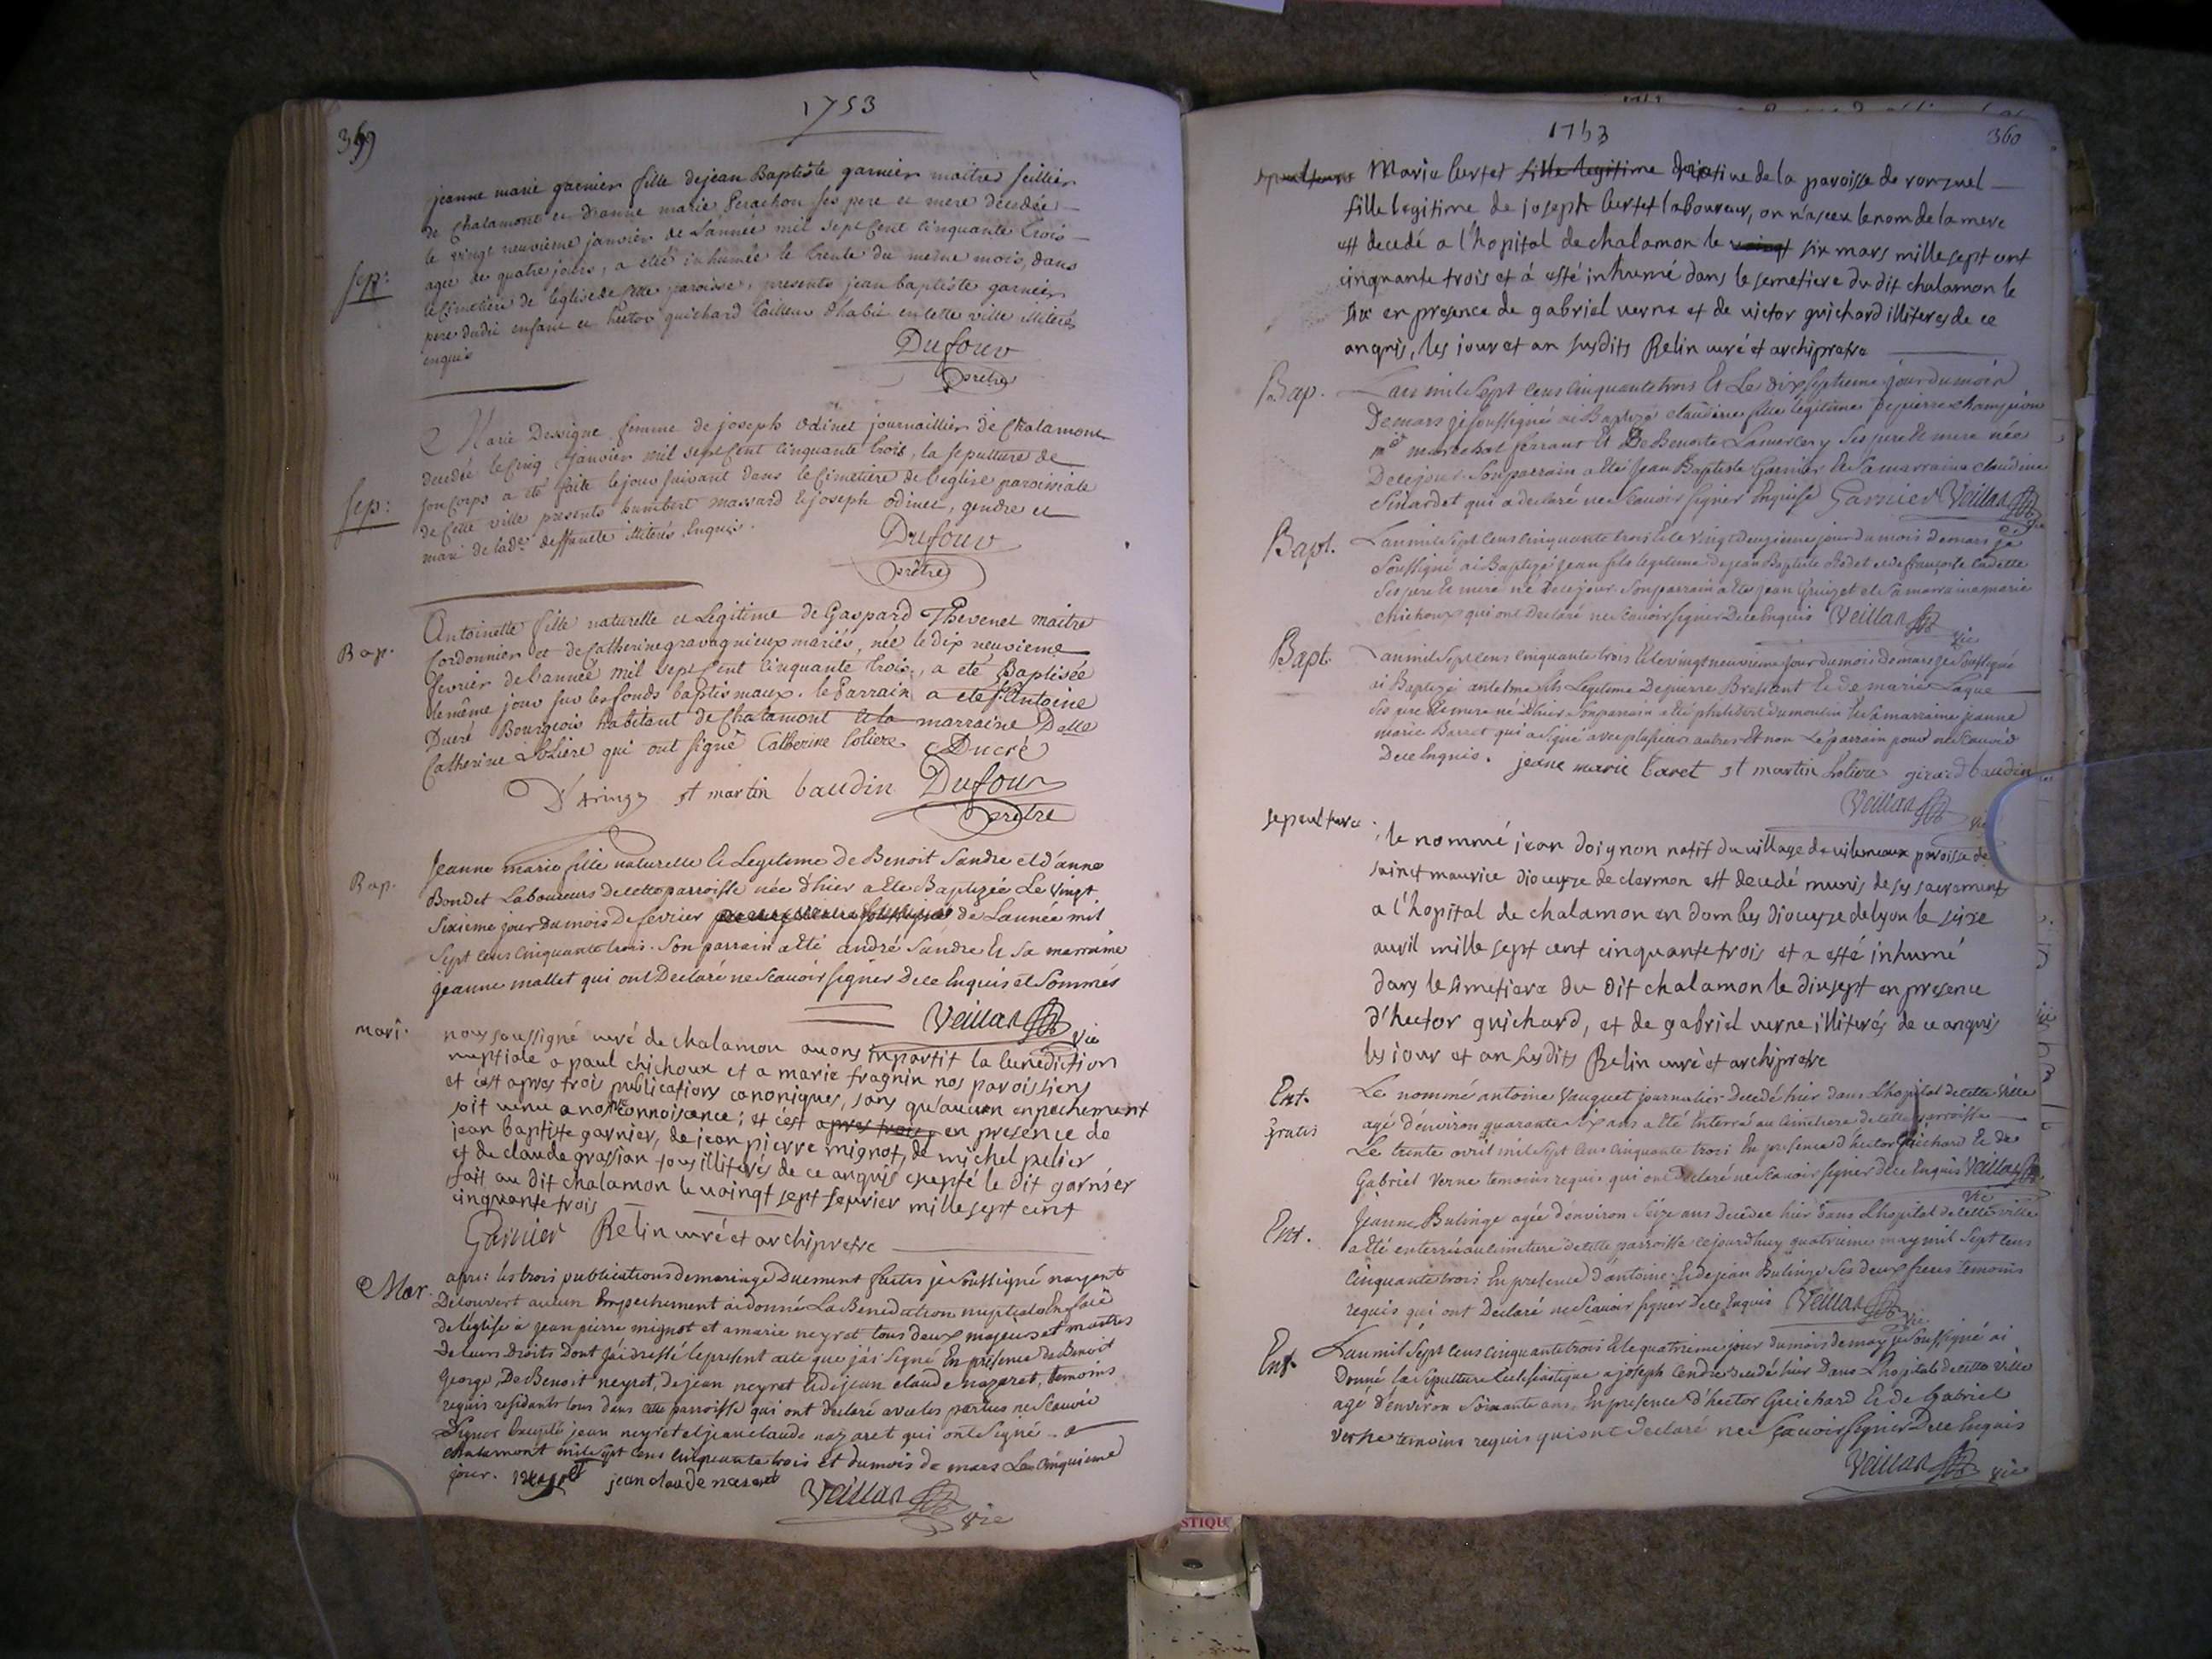 1753
359
jeanne marie garnier fille dejean Baptiste garnier maitre seillier
de Chalamont et d'anne marie Perachon ses pere et mere décedée
le vingt neuvieme janvier de Lannée mil sept Cent Cinquante trois
agée de quatre jours, a été inhumée le trente du meme mois, dans
Sep:
le Cimetiere de leglise de Cette paroisse, presents jean baptiste garnier
pere dudit enfant et hector guichard tailleur d'habit en cette ville illiterés
enquis
Dufour
prêtre
Marie Dessigne femme de joseph Odinet journaillier de Chalamont
decedée le cinq janvier mil sept Cent Cinquante trois, la sepulture de
son corps a été faite le jour suivant dans le Cimetiere de l'eglise paroissiale
Sep:
de Cette ville presents humbert massard et joseph odinet, gendre et
mari de lad.e deffunte illiterés Enquis.
Dufour
prêtre
Antoinette fille naturelle et Legitime de Gaspard Thevenet maitre
Bap.
Cordonnier et de Catherine gravagnieux mariés, née le dix neuvieme
fevrier de l'année mil sept Cent Cinquante trois, a eté Baptisée
le même jour sur les fonds baptismaux. le Parrain a eté S.r Antoine
Ducré Bourgeois habitant de Chalamont et la marraine Delle
Catherine Loliere qui ont signé Catherine loliere Ducré
st martin baudin Dufour
Prêtre
Jeanne marie fille naturelle et Legitime de Benoit Sandre et d'anne
Bap.
Bondet Laboureurs de cette parroisse née d'hier a été Baptizée Le vingt
Sixieme jour du mois De fevrier de Lannée mil
Sept Cens Cinquante trois. Son parrain a été andré Sandre Et Sa marraine
jeanne mallet qui ont Declaré ne Scavoir signer De ce Enquis et Sommés
Veillas vic
mari.
nous soussigné curé de chalamon avons inpartit la benediction
nuptiale a paul chichoux et a marie fragnin nos paroissiens
et cest apres trois publications canoniques, sans qu'aucun enpechement
soit venu a nostre connoisance; et c'est apres trois en presence de
jean baptiste garnier, de jean pierre mignot, de michel pelier
et de claude grassian tous illiterés de ce anquis exepté le dit garnier
fait au dit chalamon le vaingt sept feuvrier mille sept cent
cinquante trois
Garnier Relin curé et archipretre
Mar.
apre: les trois publications de mariage Duement faites je soussigné nayant
Découvert aucun Empechement ai donné La Benediction nuptiale En face
de léglise a jean pierre mignot et a marie neyret tous deux majeurs et maitres
De leurs Droits Dont j'ai dressé le present acte que j'ai Signé En présence de Benoit
George, De Benoit neyret, de jean neyret Et de jean claude nazaret, temoins
requis residants tous dans cette parroisse qui ont declaré avec les parties ne Scavoir
Signer Excepté jean neyret et jean claude nazaret qui ont Signé a
chalamont mil sept cens cinquante trois Et du mois de mars Le cinquieme
jour. neyret jean claude nasaret
Veillas
vic
1753
360
sepulture Marie bertet fille legitime native de la paroisse de ronzuel
fille legitime de joseph bertet laboureur, on n'a sceu le nom de la mere
est decedé a l'hopital de chalamon le vaingt six mars mille sept cent
cinquante trois et á esté inhumé dans le semetiere du dit chalamon le
six en presence de gabriel verne et de victor guichard illiteres de ce
anquis, les jour et an susdits Relin curé et archipretre
Bap.
Lan mil Sept Cens Cinquante trois Et Le dix septieme jour du mois
De mars je soussigné ai Baptizé claudine fille legitime De pierre champion
m.e marechal ferrant Et De Benoite Lamercery Ses pere Et mere née
De ce jour. Son parrain a été Jean Baptiste Garnier Et Sa marraine claudine
Sinardet qui a declaré ne Scavoir signer Enquise Garnier Veillas
vic
Bapt.
Lan mil Sept Cens Cinquante trois Et le vingt deuxieme jour du mois de mars je
Soussigné ai Baptizé jean fils légitime de jean Baptiste Rodet et de françoise Cadette
Ses pere Et mere né De ce jour. Son parrain a été jean et Sa marraine marie
chichoux qui ont Declaré ne Scavoir signer De ce Enquis Veillas
vic
Bapt.
Lan mil Sept Cens Cinquante trois Et le vingt neuvieme jour du mois de mars je Soussigné
ai Baptizé antelme fils Legitime De pierre Bressant Et de marie Laque
Ses pere Et mere né d'hier Son parrain a été philibert dumoulin Et Sa marraine jeanne
marie Barret qui a signé avec plusieurs autres Et non Le parrain pour ne Scavoir
De ce Enquis. jeane marie baret st martin loliere girard baudin
Veillas
vic
sepulture
le nommé jean doignon natif du village de vileneaux paroisse de
sainct maurice diocesze de clermon est decedé munis de ses sacrements
a l'hopital de chalamon en dombes diocesze de lyon le seize
avril mille sept cent cinquante trois et a esté inhumé
dans le simetiere du dit chalamon le dixsept en presence
d'hector guichard, et de gabriel verne illiterés de ce anquis
les jour et an susdits Relin curé et archipretre
Ent.
gratis
Le nommé antoine Vauquet journalier décédé hier dans Lhopital de cette ville
agé d'environ quarante six ans a été Enterré au cimetiere de cette parroisse
Le trente avril mil Sept Cens Cinquante trois En presence d'hector Guichard Et de
Gabriel Verne temoins requis qui ont declaré ne Scavoir signer De ce Enquis Veillas
vic
Ent.
Jeanne Bulinge agée d'environ Seize ans Decedée hier dans Lhopital de cette ville
a été enterrée au cimetiere de cette parroisse cejourdhuy quatrieme may mil Sept Cens
Cinquante trois En presence d'antoine Et de jean Bulinge Ses deux freres temoins
requis qui ont Declaré ne Scavoir signer De ce Enquis Veillas
vic
Ent.
Lan mil Sept Cens Cinquante trois Et le quatrieme jour du mois de may je Soussigné ai
Donné la Sépulture Ecclesiastique a joseph Cendre decedé hier Dans Lhopital de cette ville
agé d'environ Soixante ans, En presence d'hector Guichard Et de Gabriel
Verne temoins requis qui ont declaré ne Scavoir signer De ce Enquis
Veillas vic